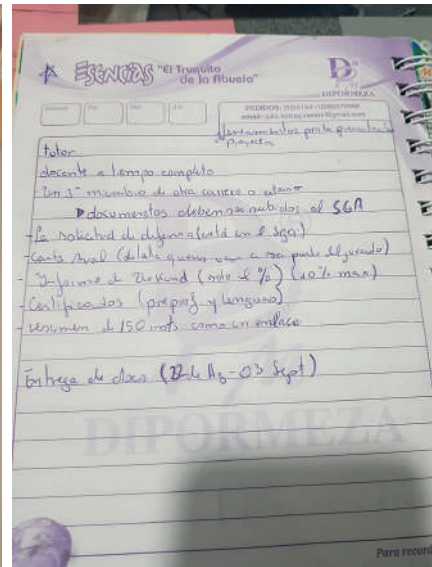 ESENCIAS "El Truquito
de la Abuela"
DIPORMEZA
PEDIDOS:
email:
proyecto
tutor
docente a tiempo completo
Un 3° miembro de otra carrera o
documentos deben ser subidos al SGA
- la solicitud de defensa (está en el sga)
- Carta Aval (detalla quienes van a ser parte del jurado)
- Informe de Urkund (solo el %) (10% max)
- Certificados (preprof y lenguas)
- resumen d 150 como un enlace
Entrega de docs ( - 03 Sept)
DIPORMEZA
Para record